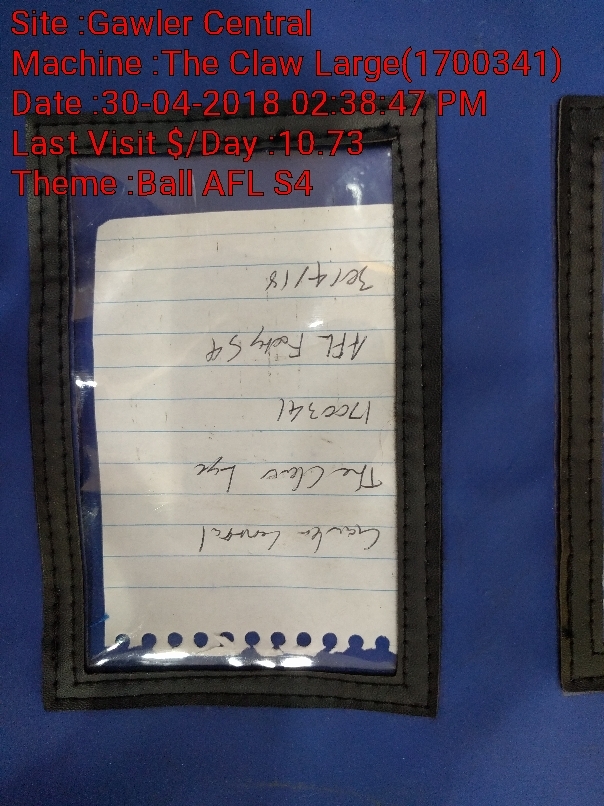 Site :Gawler Central
Machine :The Claw Large(1700341)
Date :30-04-2018 02:38:47 PM
Last Visit $/Day :10.73
Theme :Ball AFL S4
Gawler Central
The Claw Lge
1700341
AFL Footy S4
30/4/18